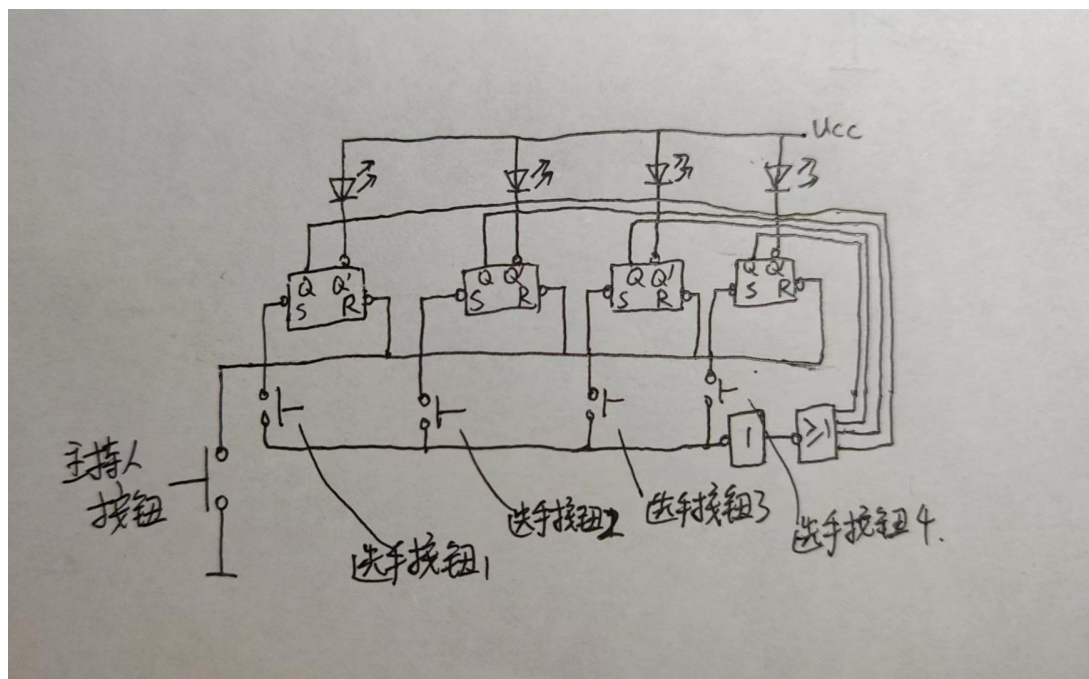 Ucc
Q Q' S R
Q Q' S R
Q Q' S R
Q Q' S R
1
≥1
主持人
按钮
选手按钮1
选手按钮2
选手按钮3
选手按钮4.